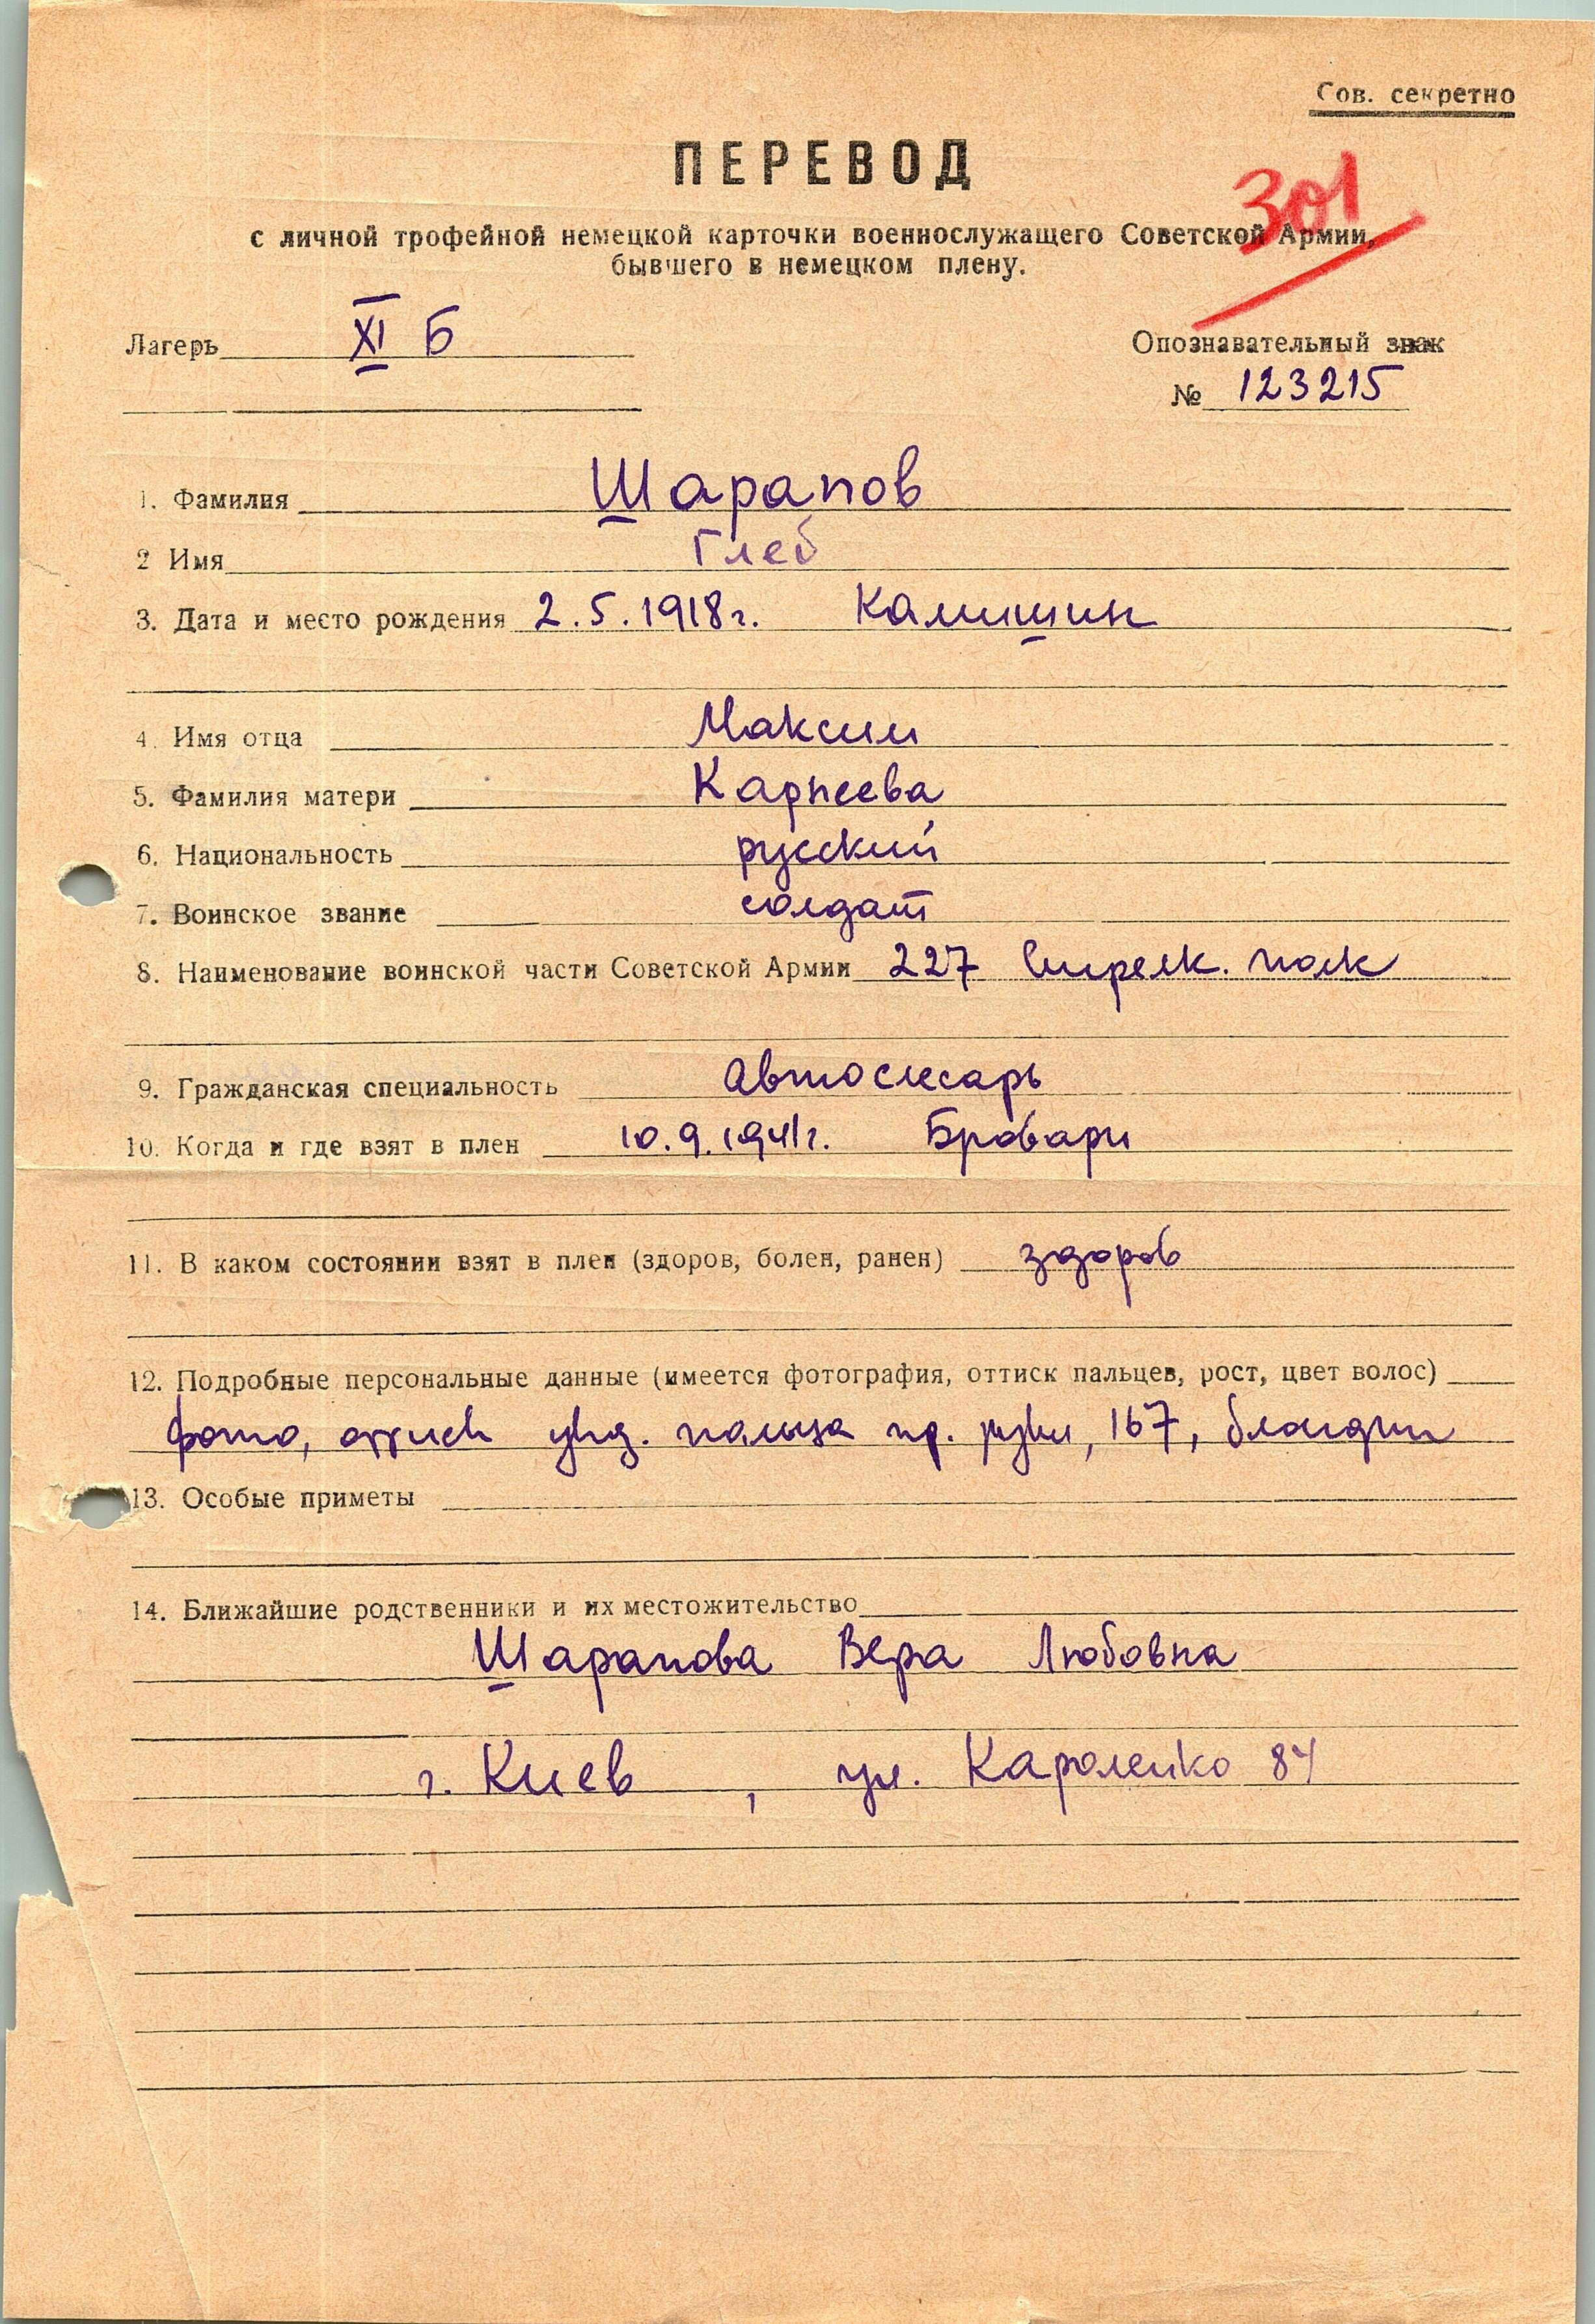 Сов. секретно
ПЕРЕВОД
301
с личной трофейной немецкой карточки военнослужащего Советской Армии,
бывшего в немецком плену.
Лагерь XI Б
Опознавательный знак
№ 123215
1. Фамилия Шарапов
2 Имя Глеб
3. Дата и место рождения 2.5.1918г. Камишин
4. Имя отца Максим
5. Фамилия матери Карнеева
6. Национальность русский
7. Воинское звание солдат
8. Наименование воинской части Советской Армии 227 Стрелк. полк
9. Гражданская специальность Автослесарь
10. Когда и где взят в плен 10.9.1941г. Бровари
11. В каком состоянии взят в плен (здоров, болен, ранен) здоров
12. Подробные персональные данные (имеется фотография, оттиск пальцев, рост, цвет волос)
фото, оттиск указ. пальца пр. руки, 167, блондин
13. Особые приметы
14. Ближайшие родственники и их местожительство
Шарапова Вера Любовна
г. Киев, ул. Кароленко 84